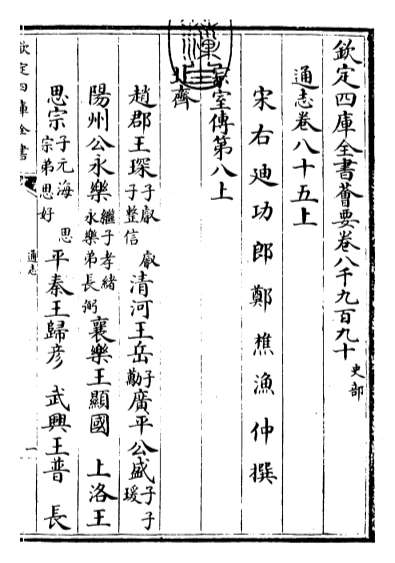 欽定四庫全書薈要卷八千九百九十 史部
通志卷八十五上
宋右迪功郎鄭樵漁仲撰
宗室傳第八上
北齊
趙郡王琛 子叡 叡子整信 清河王岳 子勱 廣平公盛 子子瑗
陽州公永樂 繼子孝緒 永樂弟長弼 襄樂王顯國 上洛王
思宗 子元海 思宗弟思好 平秦王歸彥 武興王普 長
欽定四庫全書
通志
一